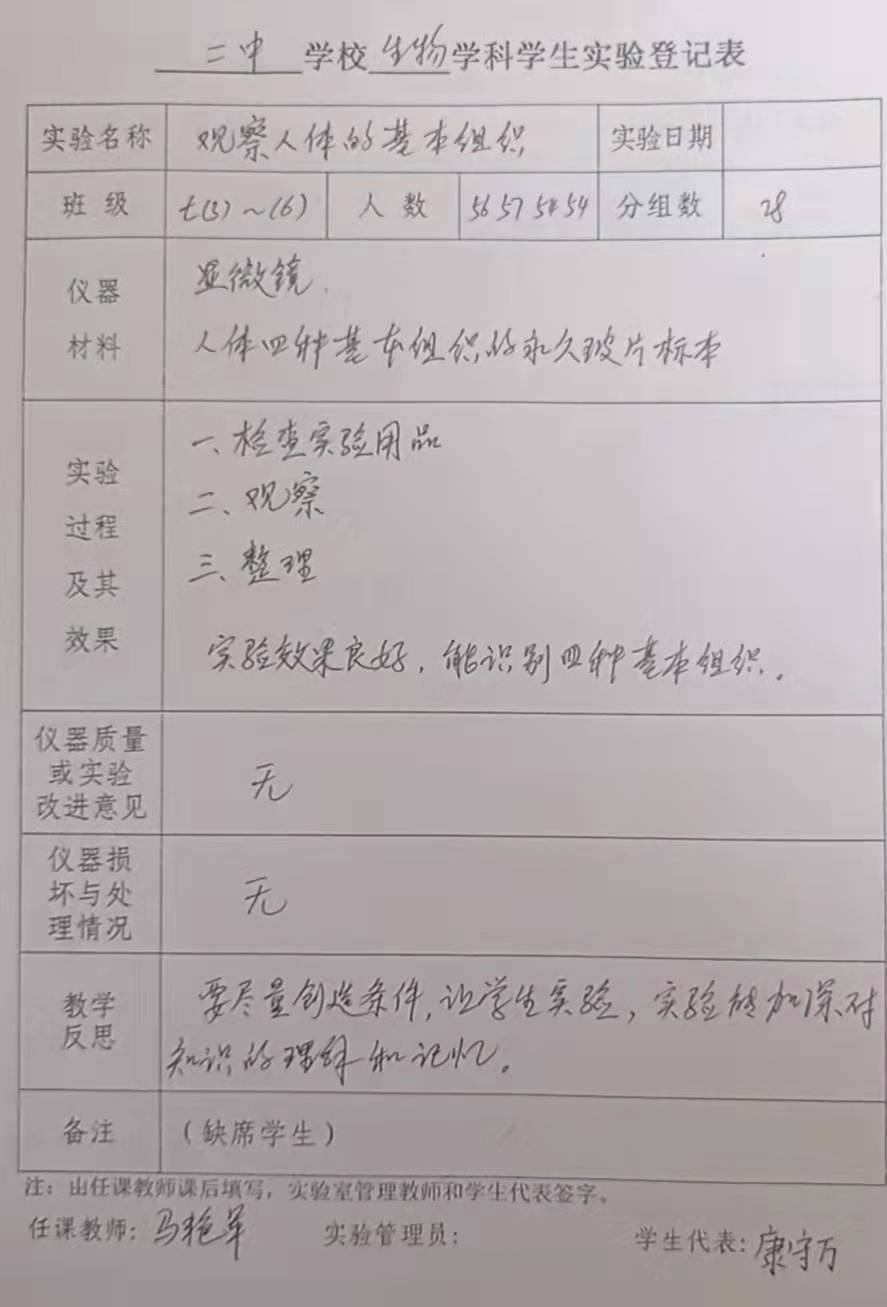 二中 学校 生物 学科学生实验登记表
实验名称 观察人体的基本组织 实验日期
班级 七(3)~(6) 人数 56 57 54 54 分组数 28
仪器材料
显微镜.
人体四种基本组织的永久玻片标本
实验过程及其效果
一、检查实验用品
二、观察
三、整理
实验效果良好，能识别四种基本组织。
仪器质量或实验改进意见 无
仪器损坏与处理情况 无
教学反思
要尽量创造条件，让学生实验，实验能加深对
知识的理解和记忆。
备注 (缺席学生)
注：由任课教师课后填写，实验室管理教师和学生代表签字。
任课教师：马艳军 实验管理员： 学生代表：康守万